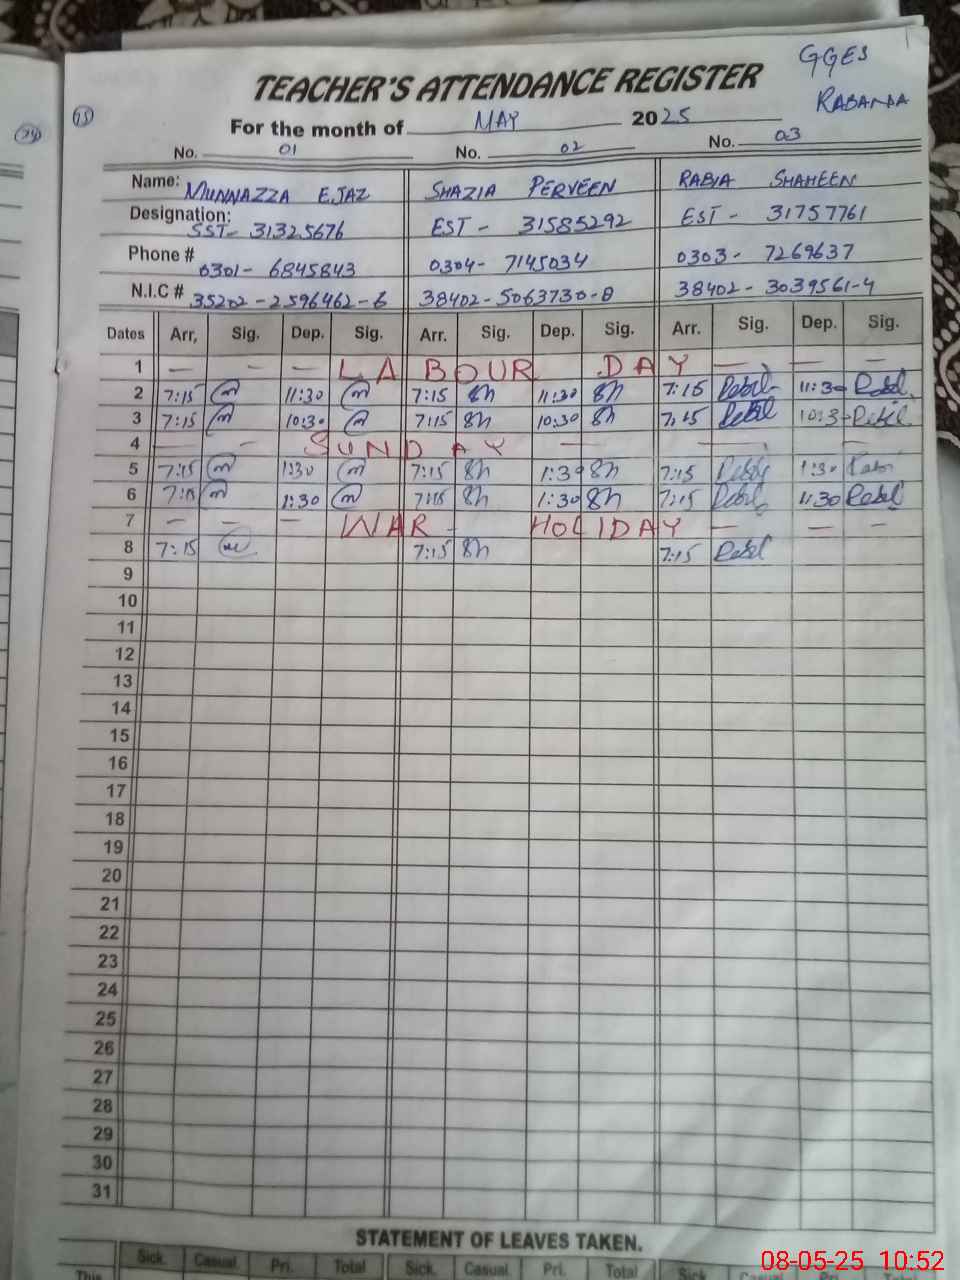 GGES
RABANA
TEACHER'S ATTENDANCE REGISTER
15
For the month of MAY 2025
No. 01 No. 02 No. 03
Name: MUNNAZZA EJAZ SHAZIA PERVEEN RABIA SHAHEEN
Designation: SST- 31325676 EST - 31585292 EST - 31757761
Phone # 0301- 6845843 0304- 7145034 0303- 7269637
N.I.C # 35202-2596462-6 38402-5063730-8 38402-3039561-4
Dates Arr, Sig. Dep. Sig. Arr. Sig. Dep. Sig. Arr. Sig. Dep. Sig.
1 — - - LABOUR DAY — — —
2 7:15 m 11:30 m 7:15 Sh 11:30 Sh 7:15 11:30
3 7:15 m 10:30 m 7:15 Sh 10:30 Sh 7:15 10:30
4 — - SUNDAY — — —
5 7:15 m 1:30 m 7:15 Sh 1:30 Sh 7:15 1:30
6 7:15 m 1:30 m 7:15 Sh 1:30 Sh 7:15 1:30
7 — - — WAR - HOLIDAY — — -
8 7:15 7:15 Sh 7:15
9
10
11
12
13
14
15
16
17
18
19
20
21
22
23
24
25
26
27
28
29
30
31
STATEMENT OF LEAVES TAKEN.
This Sick. Casual. Pri. Total Sick. Casual. Pri. Total Sick Casual
08-05-25 10:52